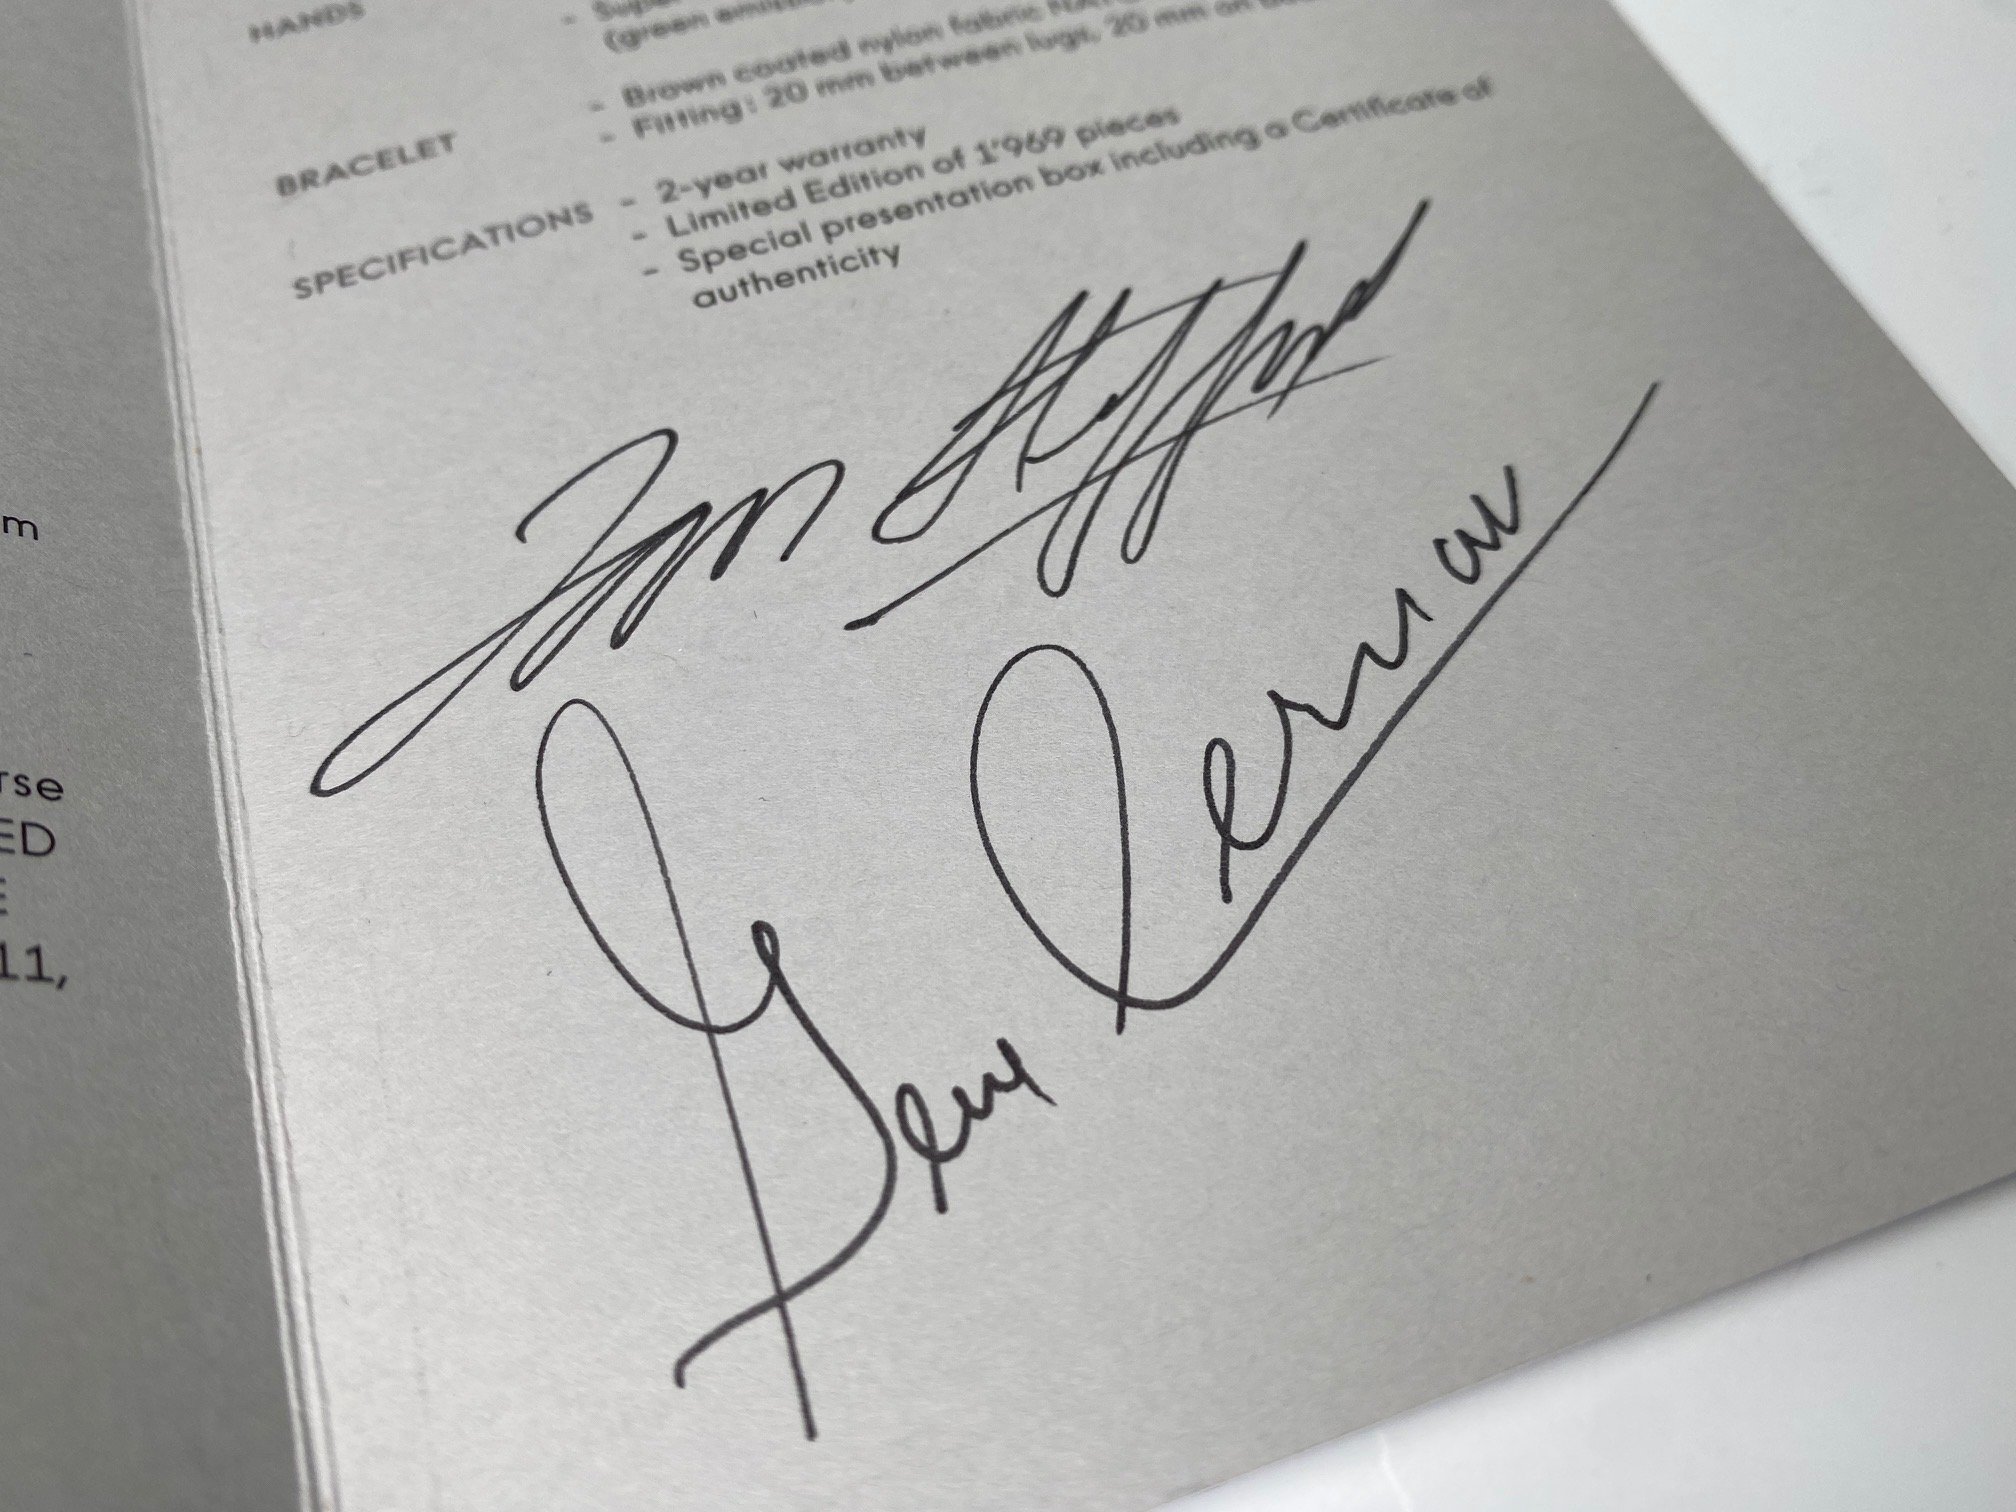 HANDS
(green emission
- Brown coated nylon fabric NATO
- Fitting : 20 mm between lugs, 20 mm on
BRACELET
- 2-year warranty
SPECIFICATIONS - Limited Edition of 1'969 pieces
- Special presentation box including a Certificate of
authenticity
m
rse
ED
E
11,
Gene Cernan